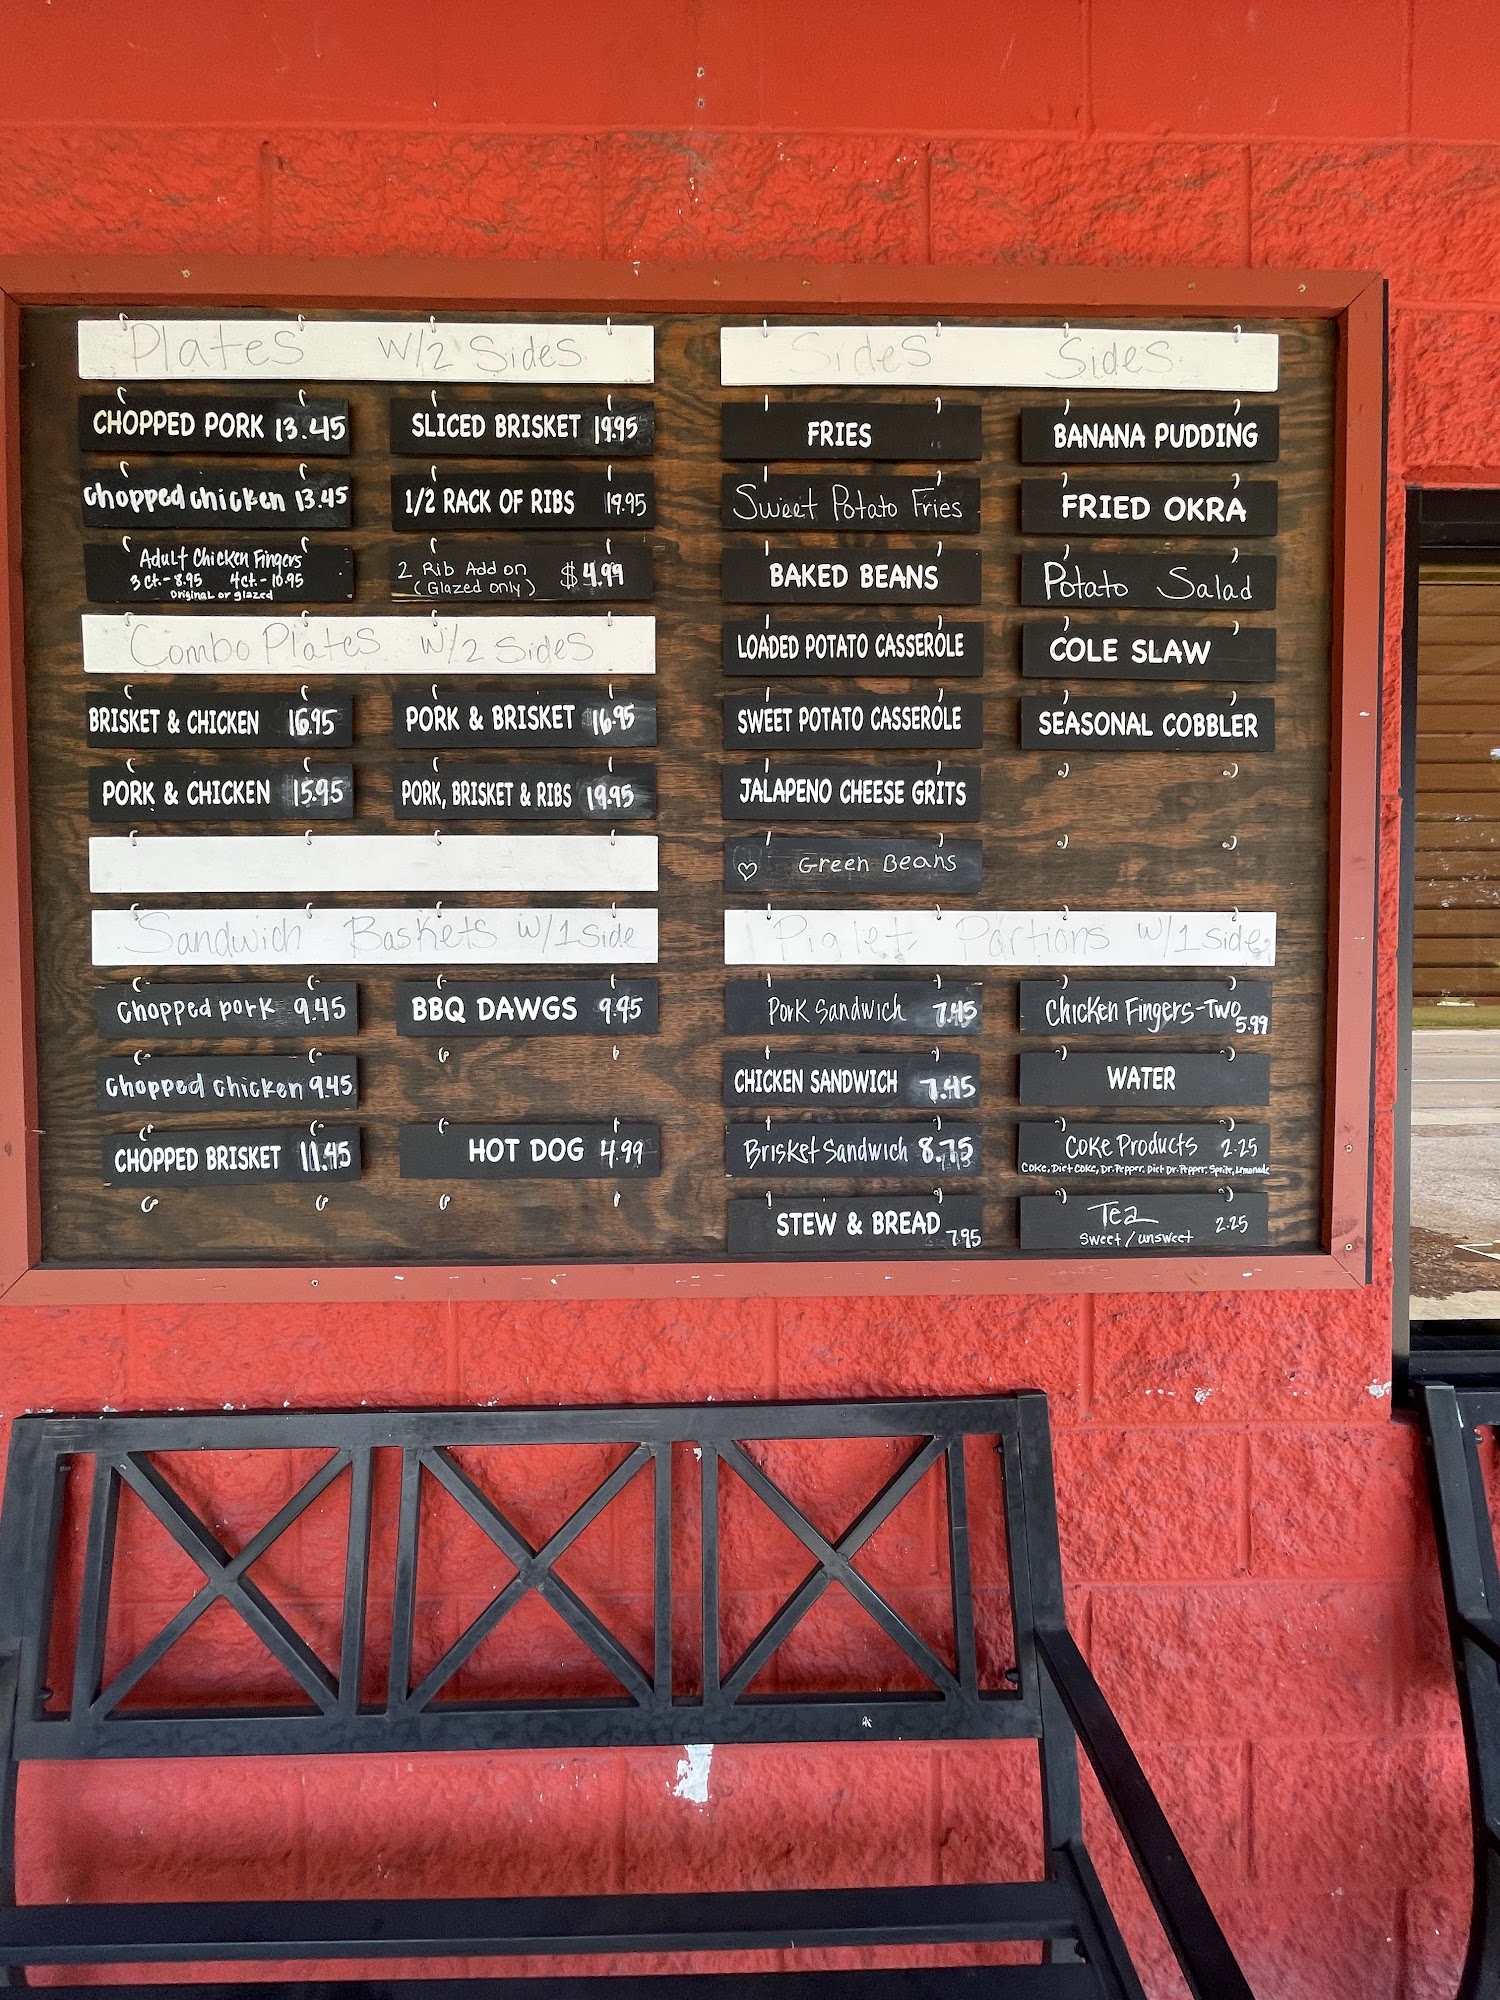 Plates w/2 Sides
CHOPPED PORK 13.45
SLICED BRISKET 19.95
Chopped chicken 13.45
1/2 RACK OF RIBS 19.95
Adult Chicken Fingers
3 ct.- 8.95 4ct.- 10.95
original or glazed
2 Rib Add on
(Glazed only) $4.99
Combo Plates w/2 sides
BRISKET & CHICKEN 16.95
PORK & BRISKET 16.95
PORK & CHICKEN 15.95
PORK, BRISKET & RIBS 19.95
Sandwich Baskets w/1 side
Chopped pork 9.45
BBQ DAWGS 9.45
Chopped chicken 9.45
CHOPPED BRISKET 11.45
HOT DOG 4.99
Sides Sides
FRIES
BANANA PUDDING
Sweet Potato Fries
FRIED OKRA
BAKED BEANS
Potato Salad
LOADED POTATO CASSEROLE
COLE SLAW
SWEET POTATO CASSEROLE
SEASONAL COBBLER
JALAPENO CHEESE GRITS
Green Beans
Piglet Portions w/1 side
Pork Sandwich 7.45
Chicken Fingers-Two
5.99
CHICKEN SANDWICH 7.45
WATER
Brisket Sandwich 8.75
Coke Products 2.25
Coke, Diet Coke, Dr. Pepper, Diet Dr. Pepper, Sprite, Lemonade
STEW & BREAD 7.95
Tea
Sweet / unsweet 2.25